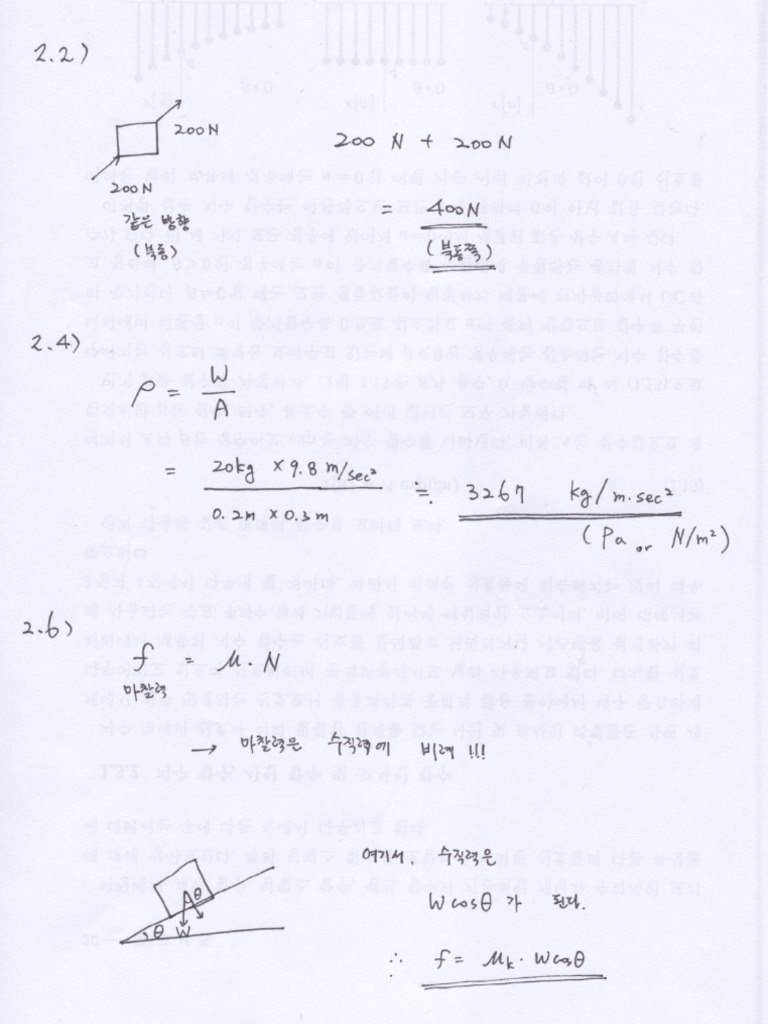 2.2)
200N
200 N + 200 N
200N
= 400N
같은 방향
(북동)
(북동쪽)
2.4)
ρ = W / A
= 20kg × 9.8 m/sec² / 0.2m × 0.3m ≒ 3267 kg/m·sec²
(Pa or N/m²)
2.6)
f = μ · N
마찰력
→ 마찰력은 수직력에 비례 !!!
여기서 수직력은
W cosθ 가 된다.
θ
θ W
∴ f = μk · W cosθ